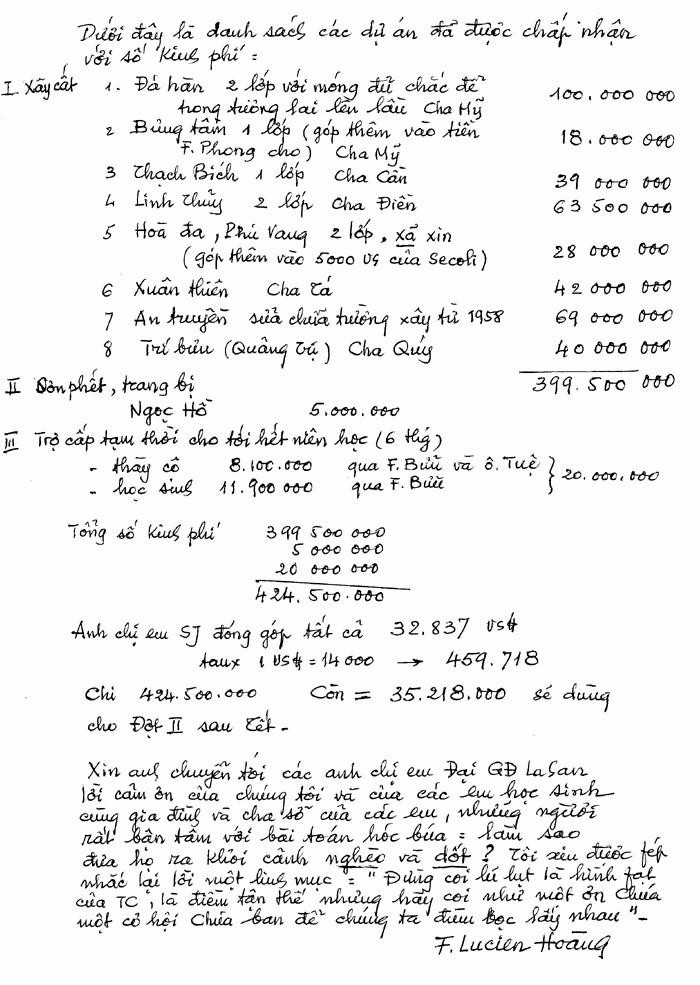 Dưới đây là danh sách các dự án đã được chấp nhận
với số kinh phí :
I. Xây cất 1. Đá hàn 2 lớp với móng đủ chắc để
trong tương lai lên lầu Cha Mỹ 100.000 000
2 Bủng tâm 1 lớp (góp thêm vào tiền
F. Phong cho) Cha Mỹ 18.000 000
3 Thạch Bích 1 lớp Cha Cần 39 000 000
4 Linh Thủy 2 lớp Cha Điển 63 500 000
5 Hoà đa, Phú Vang 2 lớp, xã xin
(góp thêm vào 5000 US của Secoli) 28 000 000
6 Xuân thiên Cha Tá 42 000 000
7 An truyền sửa chữa trường xây từ 1958 69 000 000
8 Trí bưu (Quảng Trị) Cha Quý 40 000 000
399.500 000
II Sơn phết, trang bị
Ngọc Hồ 5.000.000
III Trợ cấp tạm thời cho tới hết niên học (6 thg)
- thầy cô 8.100.000 qua F. Bửu và ô. Tuệ
- học sinh 11.900 000 qua F. Bửu } 20.000.000
Tổng số kinh phí 399 500 000
5 000 000
20 000 000
424.500.000
Anh chị em SJ đóng góp tất cả 32.837 US$
taux 1 US$ = 14 000 → 459.718
Chi 424.500.000 Còn = 35.218.000 sẽ dùng
cho Đợt II sau Tết -
Xin anh chuyển tới các anh chị em Đại GĐ LaSan
lời cảm ơn của chúng tôi và của các em học sinh
cùng gia đình và cha sở của các em, những người
rất bận tâm với bài toán hóc búa : làm sao
đưa họ ra khỏi cảnh nghèo và dốt ? Tôi xin được phép
nhắc lại lời một linh mục : "Đừng coi lũ lụt là hình phạt
của TC, là điềm tận thế nhưng hãy coi như một ơn Chúa
một cơ hội Chúa ban để chúng ta đùm bọc lấy nhau" -
F. Lucien Hoàng